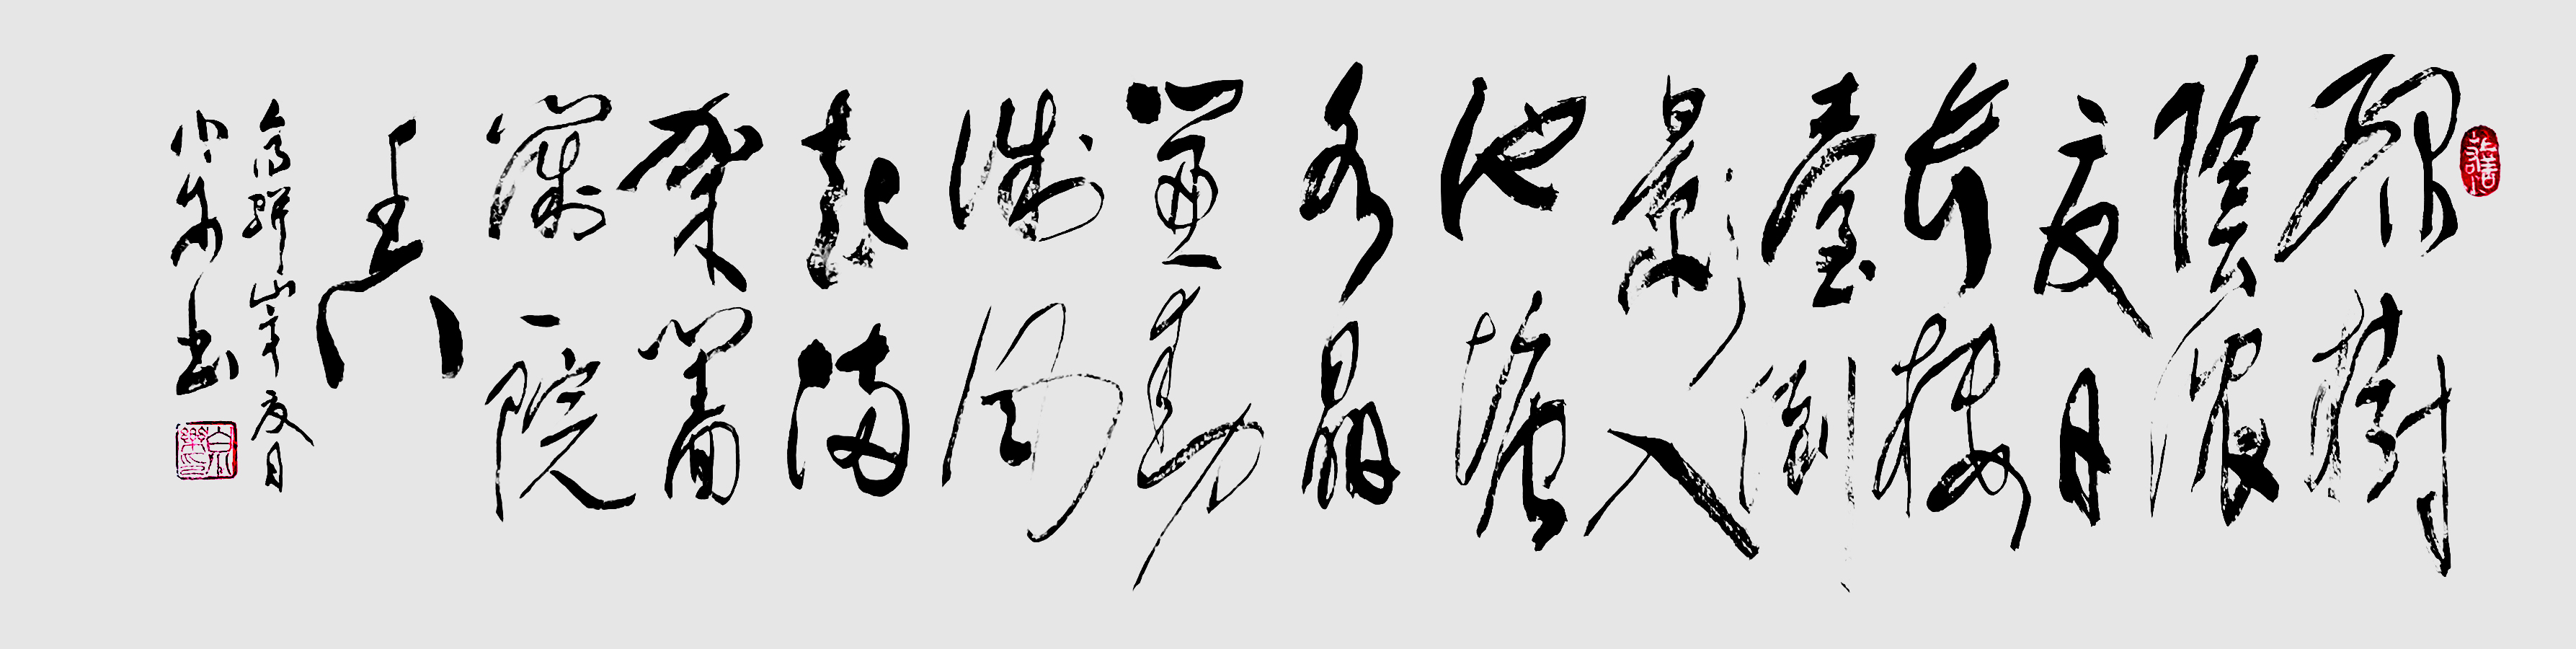 綠樹
陰濃
夏日
長樓
臺倒
影入
池塘
水晶
簾動
微風
起滿
架薔
薇一院
香
高駢山亭夏日
书